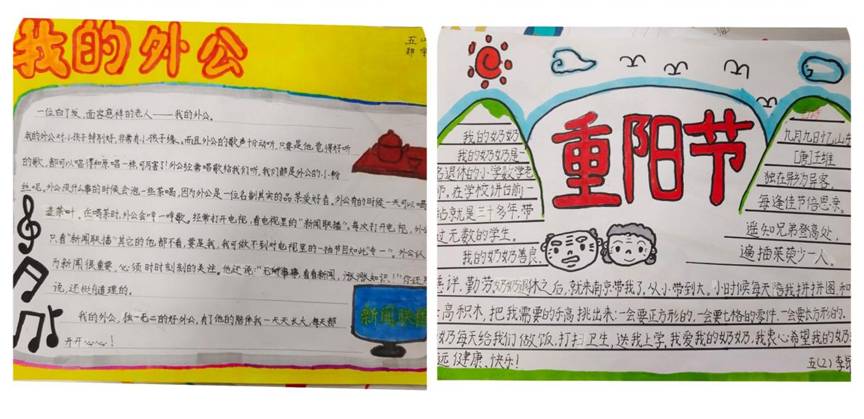 我的外公
五
一位白了发,面容慈祥的老人——我的外公。
我的外公对小孩子特别好,非常有小孩子缘。而且外公的歌声十分动听,只要是他觉得好听
的歌,都可以唱得和原唱一样,可厉害了!外公经常唱歌给我们听,我们都是外公的小粉
丝呢。外公没什么事的时候会泡一些茶喝,因为外公是一位名副其实的品茶爱好者。外公有的时候一天可以喝
壶茶叶。在喝茶时,外公会哼一哼歌。经常打开电视,看电视里的“新闻联播”。每次打开电视,外公
只看“新闻联播”其它的他都不看,要是我,我可做不到对电视里的一抽节目如此“专一”。外公认
为新闻很重要,必须时时刻刻的关注。他还说:“无聊事事,看看新闻,涨涨知识!”你还别
说,还挺有道理的。
我的外公,独一无二的好外公,有了他的陪伴我一天天长大,每天都
开开心心!
新闻联播
重阳节
我的奶奶
我的奶奶是一
名退休的小学数学老
师。在学校讲台前一
站就是三十多年,带
过无数的学生。
我的奶奶善良、
慈祥、勤劳。奶奶退休之后,就来南京带我了,从小带到大。小时候每天陪我拼拼图,和
高积木,把我需要的乐高挑出来:一会要正方形的,一会要七格的零件,一会要长方形的。
奶奶每天给我们做饭,打扫卫生,送我上学,我爱我的奶奶,我衷心希望我的奶奶
远健康、快乐!
九月九日忆山东
[唐]王维
独在异乡为异客,
每逢佳节倍思亲。
遥知兄弟登高处,
遍插茱萸少一人。
五(2)李